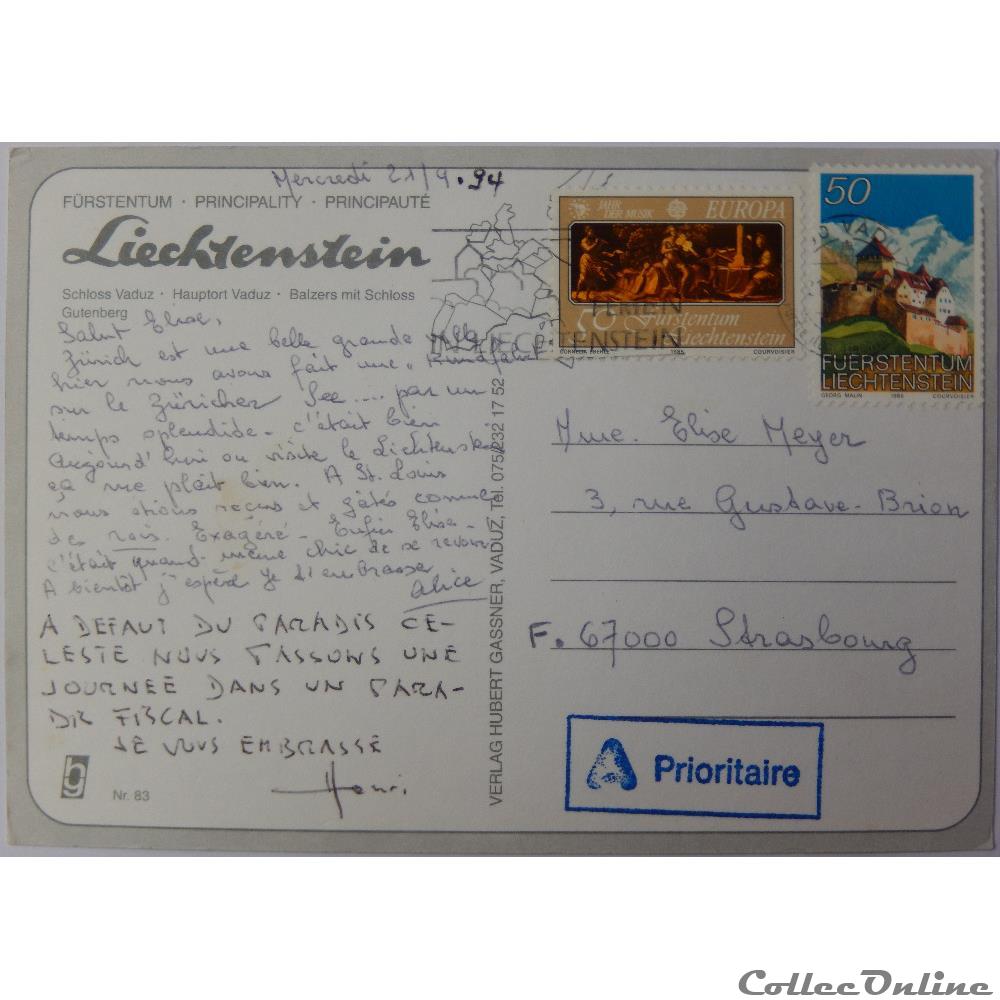 Mercredi 21/9.94
FÜRSTENTUM · PRINCIPALITY · PRINCIPAUTÉ
Liechtenstein
Schloss Vaduz · Hauptort Vaduz · Balzers mit Schloss
Gutenberg
Salut Elise,
Zürich est une belle grande ville
hier nous avons fait une "Rundfahrt"
sur le Züricher See.... par un
temps splendide - c'était bien
Aujourd'hui on visite le Lichtenstein
ça me plait bien. A St. Louis
nous étions reçus et gâtés comme
des rois. Exagéré - Enfin Elise -
c'était quand même chic de se revoir
A bientôt j'espère je t'embrasse
Alice
A DEFAUT DU PARADIS CE-
LESTE NOUS PASSONS UNE
JOURNEE DANS UN PARA-
DIS FISCAL.
JE VOUS EMBRASSE
Henri
hg
Nr. 83
VERLAG HUBERT GASSNER, VADUZ, Tel. 075/232 17 52
JAHR
DER MUSIK
EUROPA
50 Fürstentum
Liechtenstein
CORNELIA EBERLE
1985
COURVOISIER
FERIEN
IN LIECHTENSTEIN
50
VADUZ
FUERSTENTUM
LIECHTENSTEIN
GEORG MALIN 1986 COURVOISIER
Mme. Elise Meyer
3, rue Gustave-Brion
F. 67000 Strasbourg
A Prioritaire
CollecOnline